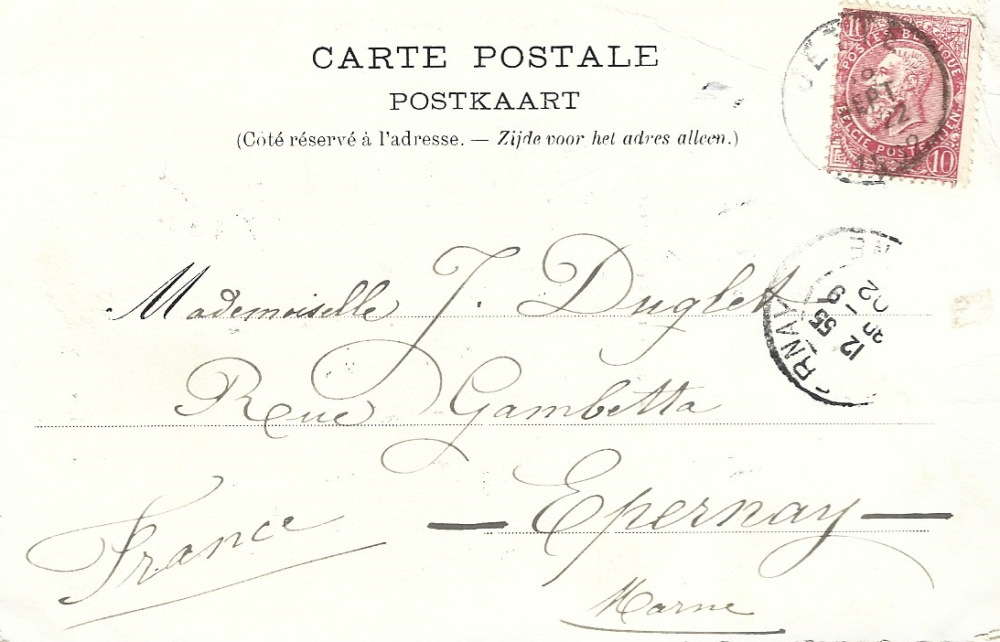 CARTE POSTALE
POSTKAART
(Côté réservé à l'adresse. — Zijde voor het adres alleen.)
10
POSTES BELGIQUE
BELGIE POSTERIJEN
10
SEPT
Mademoiselle J. Duglet
12 55
Rue Gambetta
Epernay
France
Marne